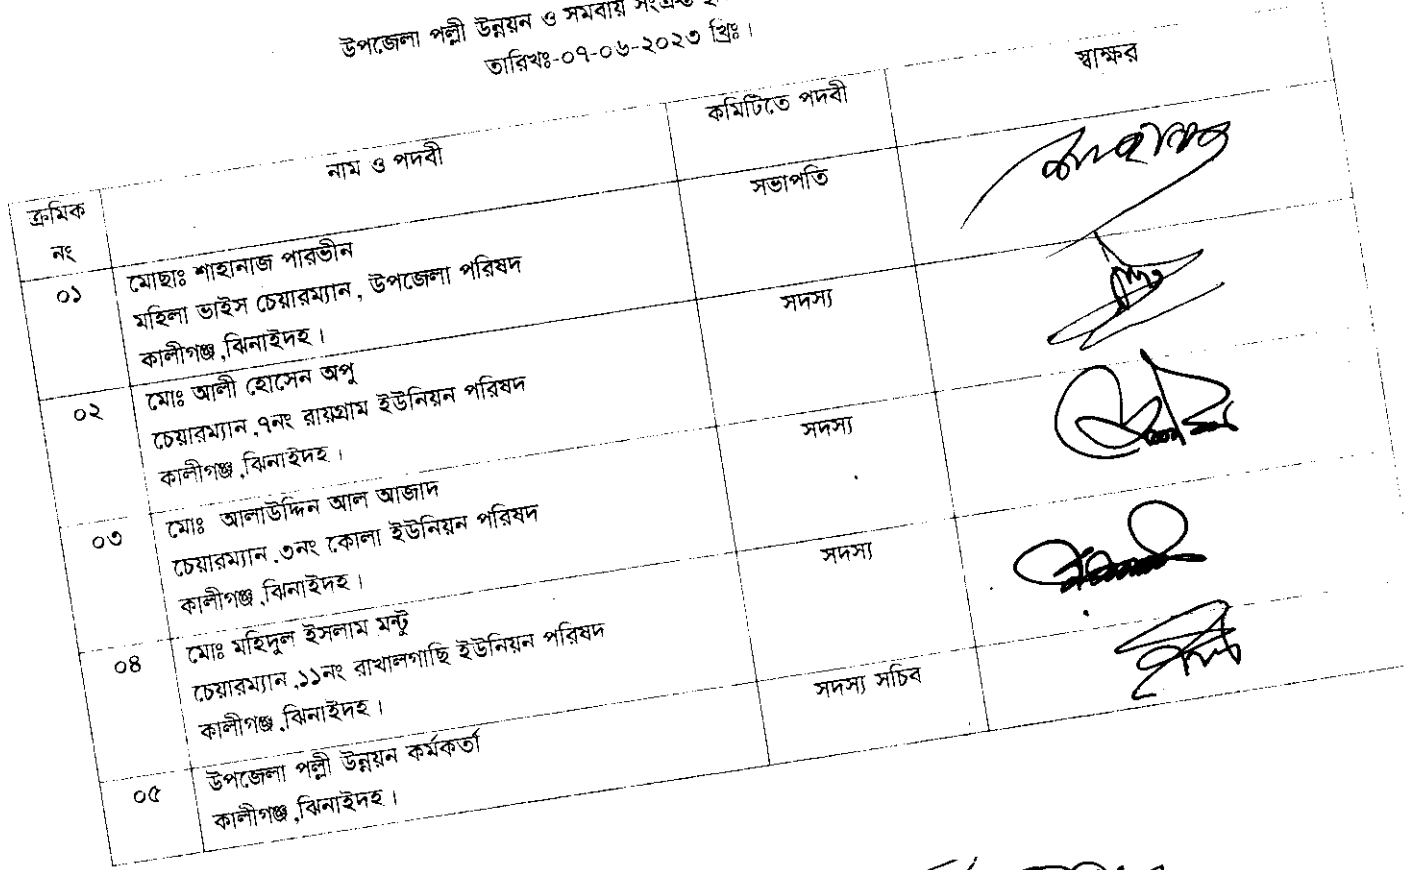 উপজেলা পল্লী উন্নয়ন ও সমবায়
তারিখঃ-০৭-০৬-২০২৩ খ্রিঃ।
ক্রমিক নং নাম ও পদবী কমিটিতে পদবী স্বাক্ষর
০১ মোছাঃ শাহানাজ পারভীন সভাপতি
মহিলা ভাইস চেয়ারম্যান, উপজেলা পরিষদ
কালীগঞ্জ,ঝিনাইদহ।
০২ মোঃ আলী হোসেন অপু সদস্য
চেয়ারম্যান,৭নং রায়গ্রাম ইউনিয়ন পরিষদ
কালীগঞ্জ,ঝিনাইদহ।
০৩ মোঃ আলাউদ্দিন আল আজাদ সদস্য
চেয়ারম্যান,৩নং কোলা ইউনিয়ন পরিষদ
কালীগঞ্জ,ঝিনাইদহ।
০৪ মোঃ মহিদুল ইসলাম মন্টু সদস্য
চেয়ারম্যান,১১নং রাখালগাছি ইউনিয়ন পরিষদ
কালীগঞ্জ,ঝিনাইদহ।
০৫ উপজেলা পল্লী উন্নয়ন কর্মকর্তা সদস্য সচিব
কালীগঞ্জ,ঝিনাইদহ।